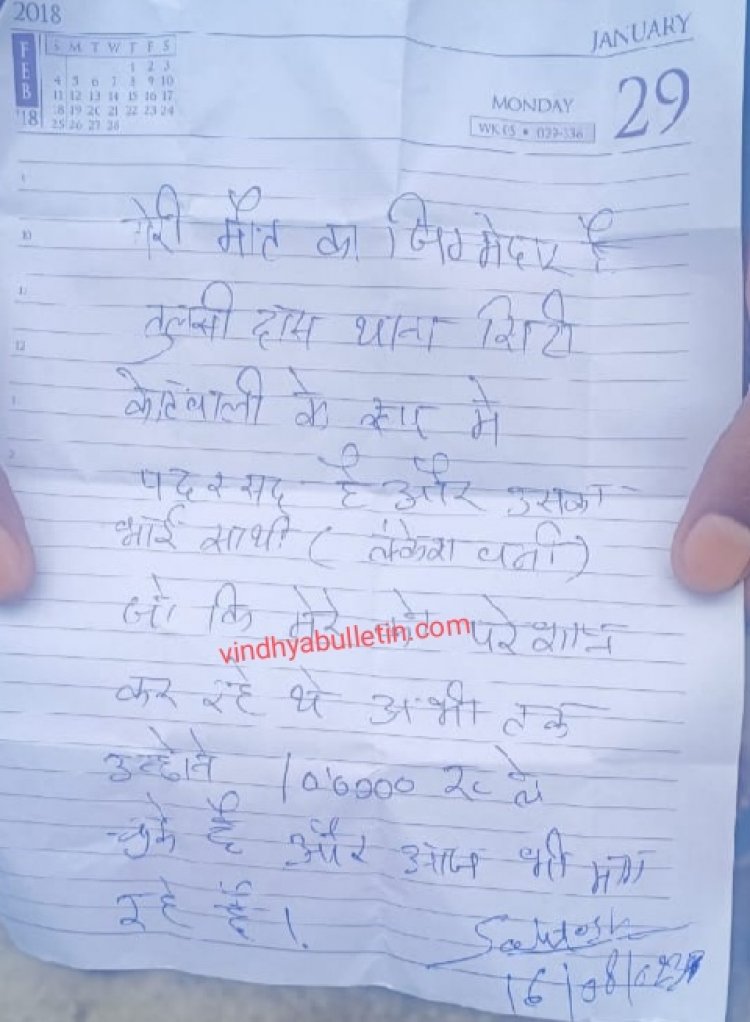 2018
JANUARY
FEB '18
S M T W T F S
1 2 3
4 5 6 7 8 9 10
11 12 13 14 15 16 17
18 19 20 21 22 23 24
25 26 27 28
MONDAY
29
WK 05 • 029-336
मेरी मौत का जिम्मेदार है
तुलसी दास थाना सिटी
कोतवाली के रूप मे
पदस्सद है और उसका
भाई साथी ( लंकेश वर्मा)
जो कि मेरे को परेशान
vindhyabulletin.com
कर रहे थे अभी तक
उन्होने रु ले
चुके हैं और आज भी मांग
रहे हैं।
Santosh
16/08/023